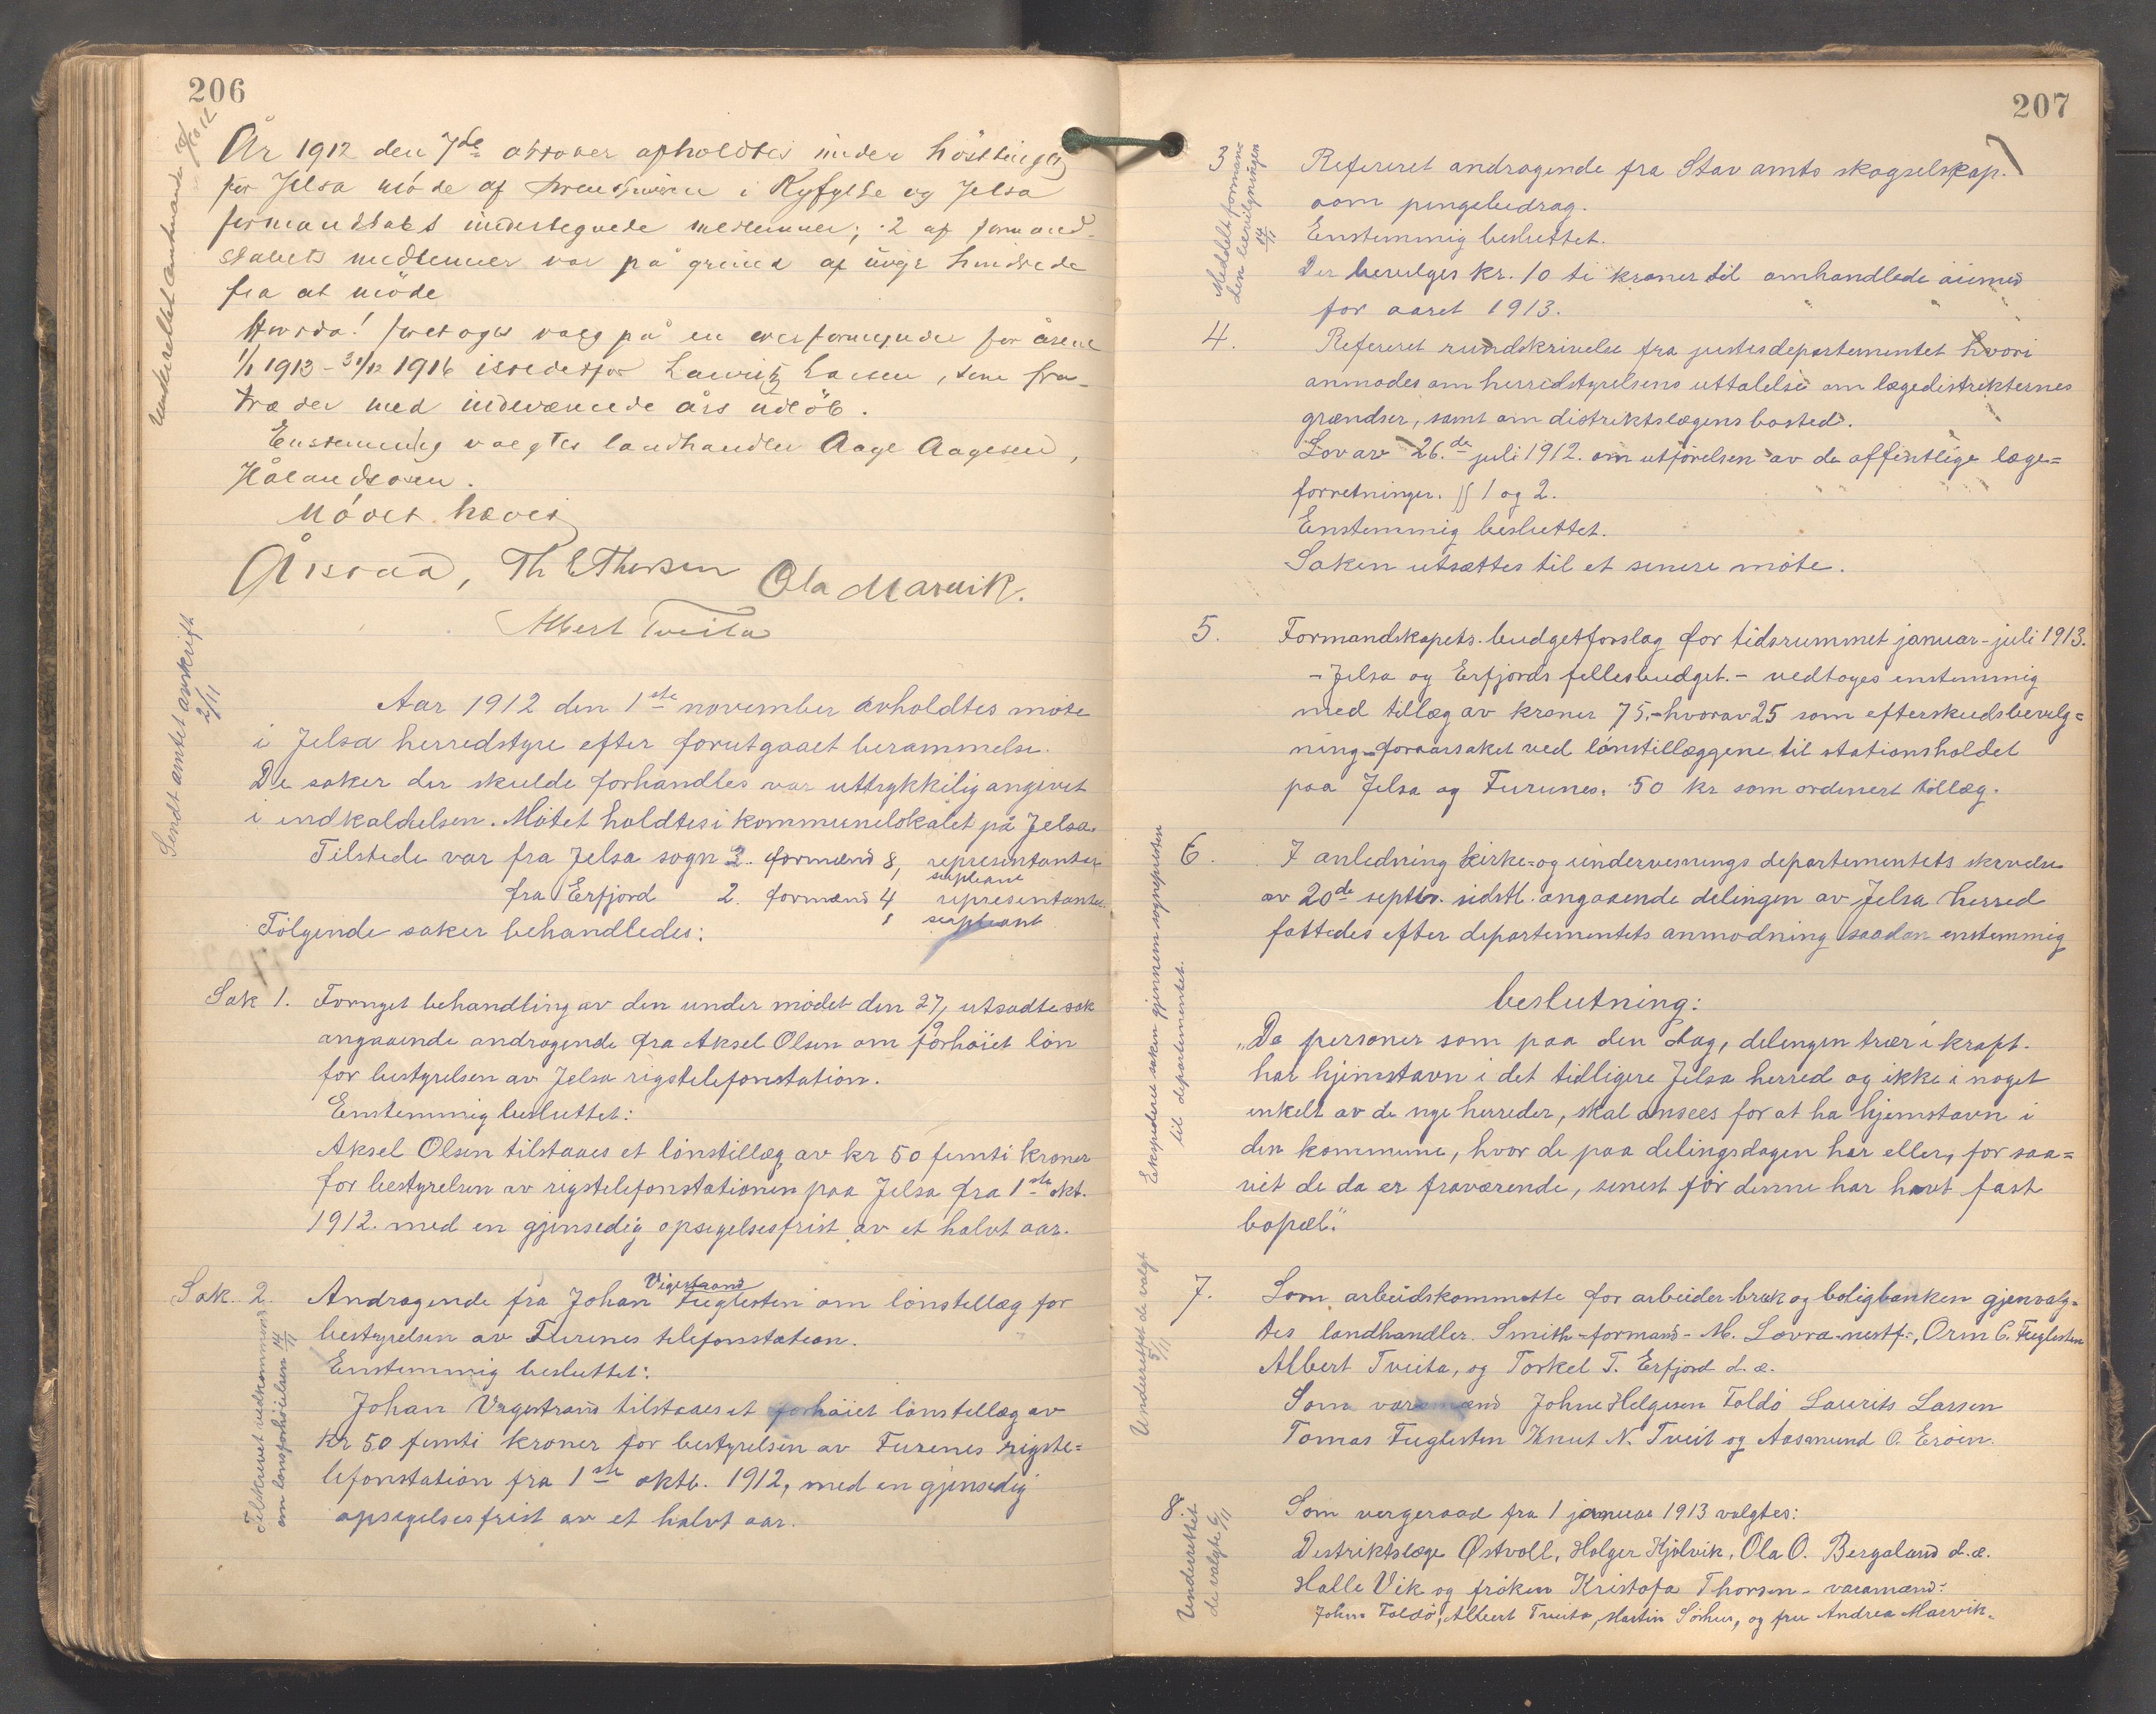 206
Underrettet amtmanden
10/10 12
År 1912 den 7de oktober afholdtes under hösttinget
for Jelsa möde af i Ryfylke og Jelsa
formandskabs undertegnede medlemmer; 2 af formand-
skabets medlemmer var på grund af hindrede
fra at möde
foretoges valg på en for årene
1/1 1913 - 31/12 1916 istedetfor Lauritz Larsen, som fra-
træder med indeværende års udlöb.
Enstemmig valgtes landhandler Aage Aagesen,
Hålandsosen.
Mödet hævet
Th E Thorsen Ola Marvik.
Albert Tveita
Sendt amtet avskrift
2/11
Aar 1912 den 1ste november avholdtes möte
i Jelsa herredstyre efter forutgaaet berammelse.
De saker der skulde forhandles var uttrykkilig angivet
i indkaldelsen. Mötet holdtes i kommunelokalet på Jelsa.
Tilstede var fra Jelsa sogn 2. formænd 8, representanter
1 supleant
fra Erfjord 2. formænd 4 representanter
1 supleant
Fölgende saker behandledes:
Sak 1. Fornyet behandling av den under mödet den 27/9 utsadte sak
angaaende andragende fra Aksel Olsen om forhöiet lön
for bestyrelsen av Jelsa rigstelefonstation.
Enstemmig besluttet:
Aksel Olsen tilstaaes et lönstillæg av kr 50 femti kroner
for bestyrelsen av rigstelefonstationen paa Jelsa fra 1ste okt.
1912. med en gjensedig opsigelsesfrist av et halvt aar.
Sak. 2. Andragende fra Johan Fuglesten om lönstillæg for
Vigestrand
bestyrelsen av Furenes telefonstation.
Enstemmig besluttet:
Johan Vigestrand tilstaaes et forhöiet lönstillæg av
kr 50 femti kroner for bestyrelsen av Furenes rigste=
lefonstation fra 1ste oktb. 1912, med en gjensedig
opsigelsesfrist av et halvt aar.
Tilskrevet vedkommende
om lønsforhöielsen 14/11
207
3 Refereret andragende fra Stav amts skogselskap.
om pengebidrag.
Enstemmig besluttet.
Der bevilges kr. 10 ti kroner til omhandlede öiemed
for aaret 1913.
Meddelt formann
den bevilgningen
14/11
4. Refereret rundskrivelse fra justisdepartementet hvori
anmodes om herredstyrelsens uttalelse om lægedistrikternes
grændser, samt om distriktslægens bosted.
Lov av 26.de juli 1912. om utförelsen av de offentlige læge=
forretninger. §§ 1 og 2.
Enstemmig besluttet.
Saken utsættes til et senere möte.
5. Formandskapets budgetforslag for tidsrummet januar-juli 1913.
- Jelsa og Erfjords fellesbudget. - vedtoges enstemmig
med tillæg av kroner 75,- hvorav 25 som efterskudsbevilg=
ning - foraarsaket ved lönstillæggene til stationsholdet
paa Jelsa og Furunes. 50 kr som ordinert tillæg.
6. I anledning kirke- og undervisnings departementets skrivelse
av 20de septbr. sidstl. angaaende delingen av Jelsa herred
fattedes efter departementets anmodning saadan enstemmig
beslutning:
„De personer som paa den dag, delingen trær i kraft.
har hjemstavn i det tidligere Jelsa herred og ikke i noget
enkelt av de nye herreder, skal ansees for at ha hjemstavn i
den kommune, hvor de paa delingsdagen har eller, for saa=
vit de da er fraværende, senest för denne har havt fast
bopæl.“
Ekspederes saken gjennem sogneprsten
til departementet.
7. Som arbeidskommitte for arbeider-bruk og boligbanken gjenvalg-
tes landhandler. Smith - formand - M. Lovra - nestf. -, Orm C. Fuglesten
Albert Tveita, og Torkel T. Erfjord d. æ.
Som varamænd Johne Helgesen Foldö Laurits Larsen
Tomas Fuglesten Knut N. Tveit og Aasmund O. Eröen.
Underrettet de valgt
5/11
8. Som vergeraad fra 1 januar 1913 valgtes:
Destriktslæge Østvoll, Holger Hjølvik, Ola O. Bergaland d. æ.
Halle Vik og fröken Kristofa Thorsen - varamænd:
John Foldö, Albert Tveita, Martin Sörhus, og fru Andrea Marvik.
Underrettet
de valgte 6/11